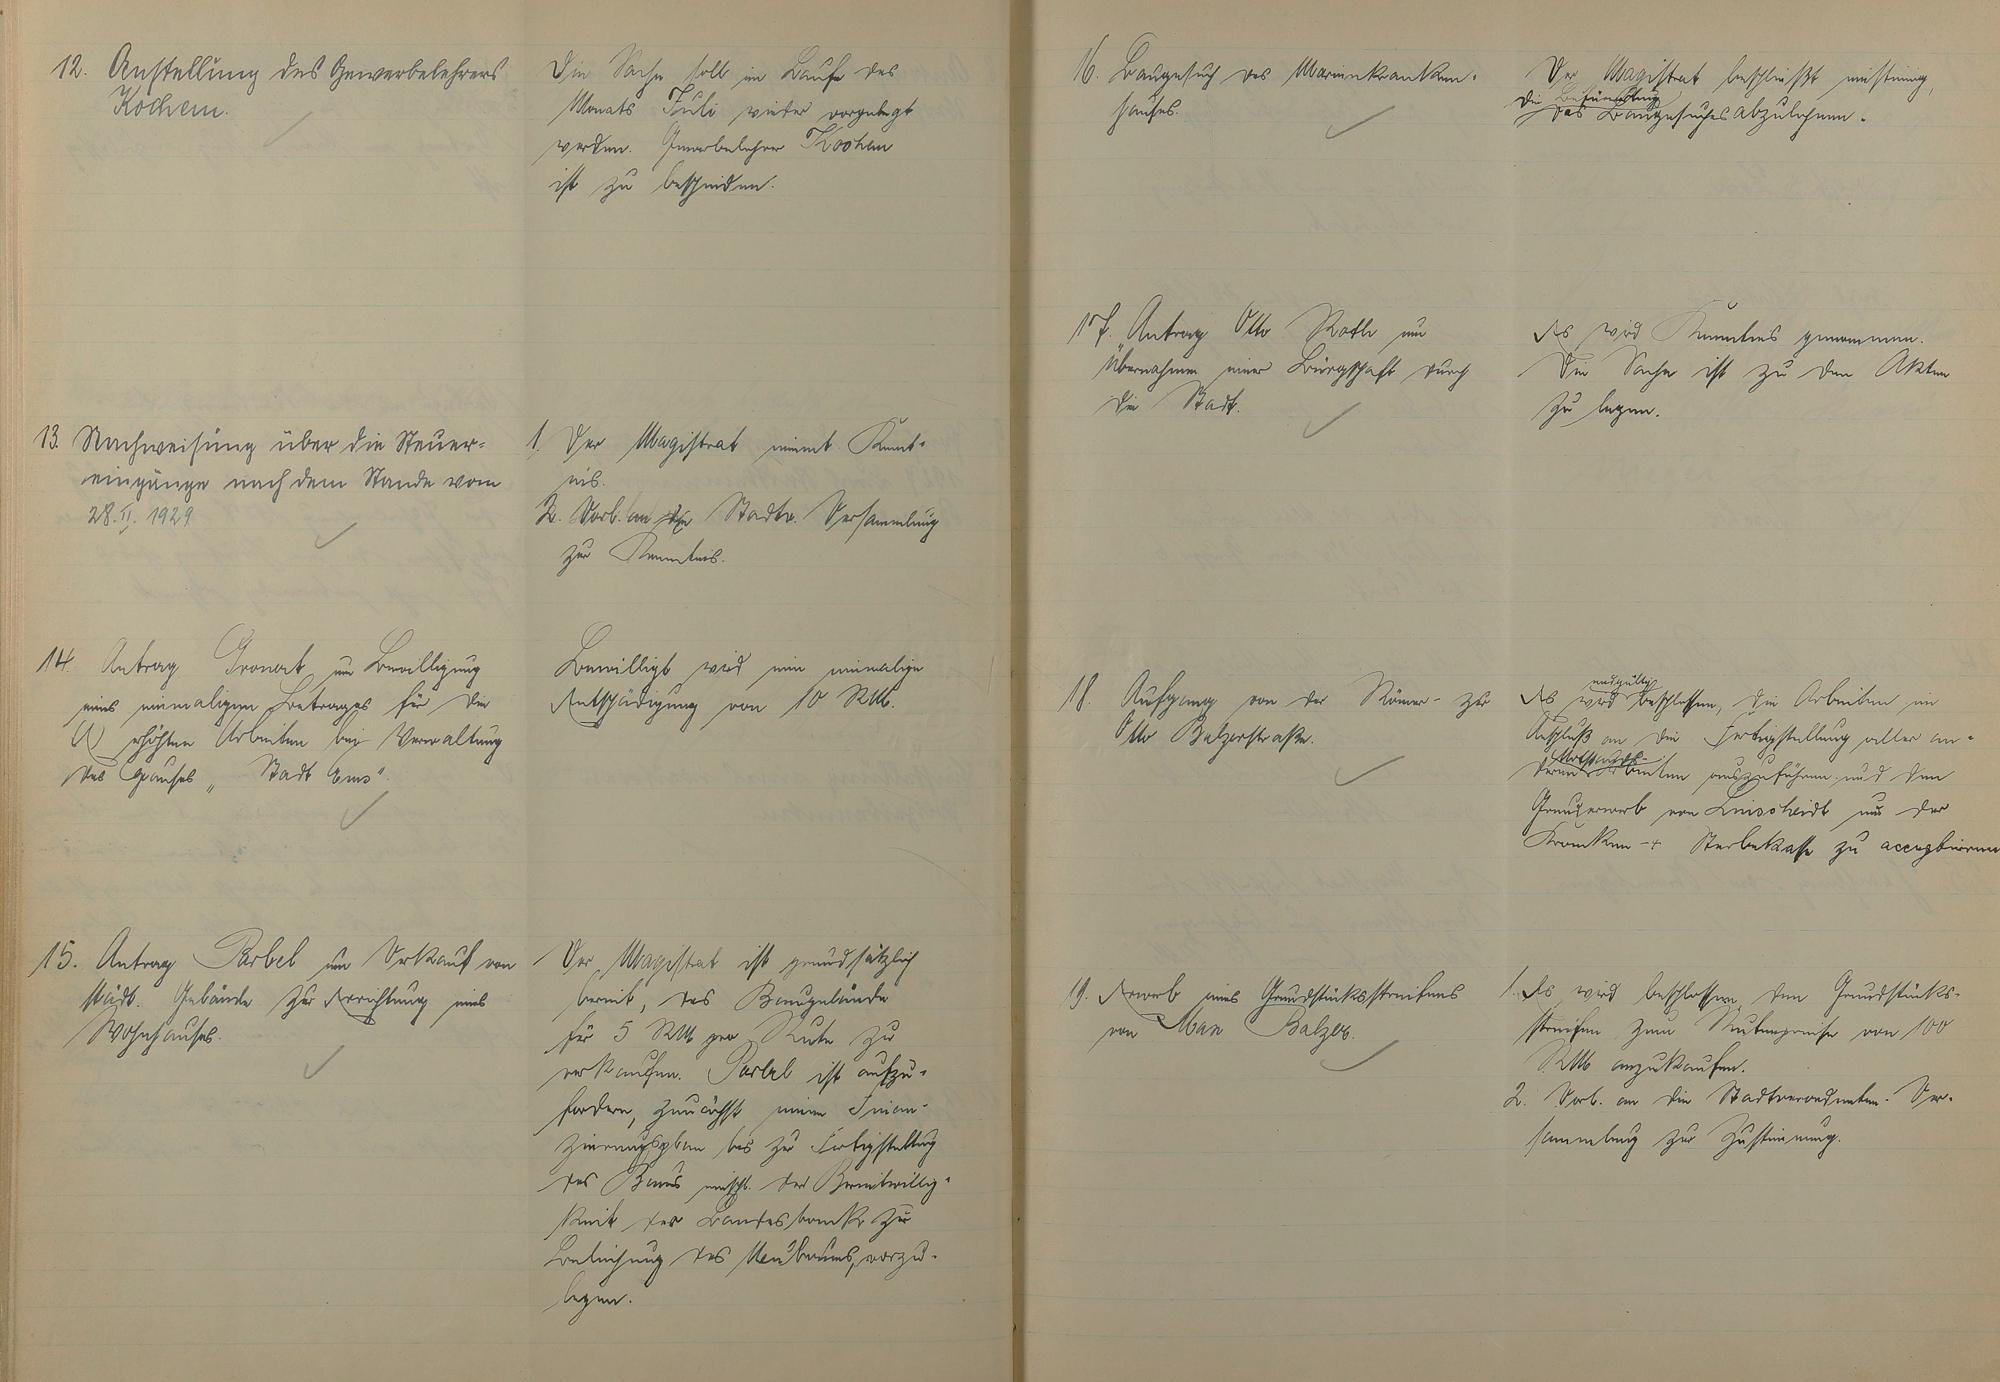 12. Anstellung des Gewerbelehrers
Kochem.
Die Sache soll im Laufe des
Monats Juli wieder vorgelegt
werden. Gewerbelehrer Kochem
ist zu bescheiden.
13. Nachweisung über die Steuer-
eingänge nach dem Stande vom
28. II. 1929
1. Der Magistrat nimmt Kennt-
nis.
2. Vorl. an die Stadtv. Versammlung
zur Kenntnis.
14. Antrag Gronart um Bewilligung
eines einmaligen Betrages für die
erhöhten Arbeiten bei Verwaltung
des Hauses „Stadt Ems".
Bewilligt wird eine einmalige
Entschädigung von 10 RM.
15. Antrag Barbel um Verkauf von
städt. Gelände zur Errichtung eines
Wohnhauses.
Der Magistrat ist grundsätzlich
bereit, das Baugelände
für 5 RM pro Rute zu
verkaufen. Barbel ist aufzu-
fordern, zunächst einen Finan-
zierungsplan bis zur Fertigstellung
des Baues einschl. der Bereitwillig-
keit der Landesbank zur
Beleihung des Neubaues, vorzu-
legen.
16. Baugesuch des Marienkranken-
hauses.
Der Magistrat beschließt einstimmig,
die Befürwortung
des Baugesuches abzulehnen.
17. Antrag Otto Roth um
Übernahme einer Bürgschaft durch
die Stadt.
Es wird Kenntnis genommen.
Die Sache ist zu den Akten
zu legen.
18. Aufgang von der Römer- zur
Otto Balzerstraße.
endgültig
Es wird beschlossen, die Arbeiten im
Anschluß an die Fertigstellung aller an-
Notstands-
deren Arbeiten auszuführen und den
von Linscheidt und der
Kranken- + Sterbekasse zu acceptieren
19. Erwerb eines Grundstücksstreifens
von Max Balzer.
1. Es wird beschlossen, den Grundstücks-
streifen zum Rutenpreise von 100
RM anzukaufen.
2. Vorl. an die Stadtverordneten-Ver-
sammlung zur Zustimmung.